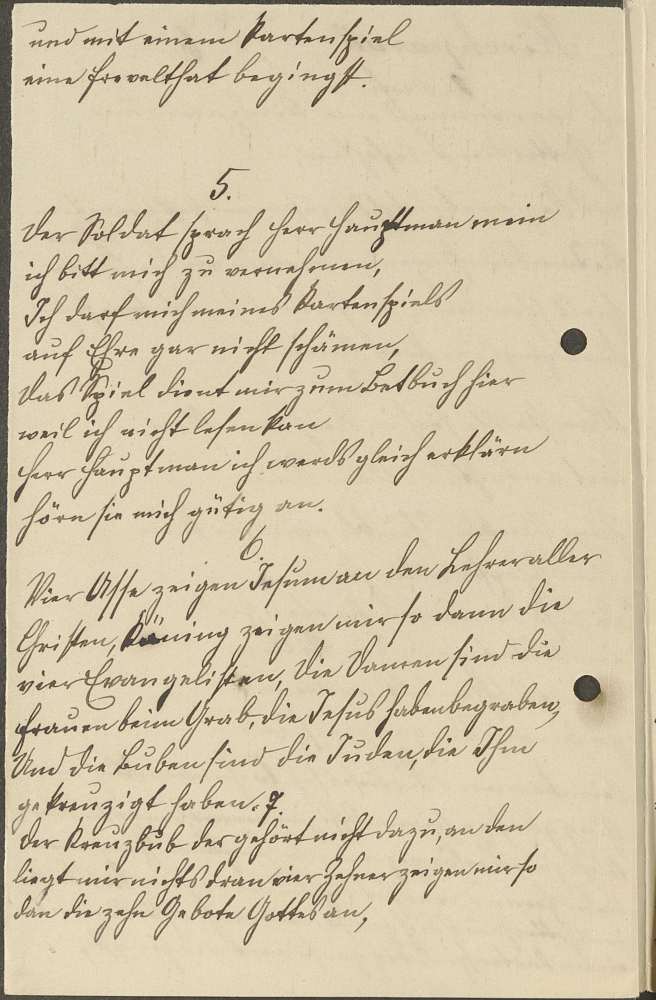 und mit einem Kartenspiel
eine frevelthat begingst.
5.
Der Soldat sprach herr Hauptman mein
ich bitt mich zu vernehmen,
Ich darf mich meines Kartenspiels
auf Ehre gar nicht schämen,
das Spiel dient mir zum Betbuch hier
weil ich nicht lesen kan
herr hauptman ich werds gleich erklärn
hörn sie mich gütig an.
6.
Vier Asse zeigen Jesum an den Lehrer aller
Christen, Köning zeigen mir so dann die
vier Evangelisten, die Damen sind die
frauen beim Grab, die Jesus haben begraben,
Und die Buben sind die Juden, die Ihm
gekreuzigt haben. 7.
der Kreuzbub der gehört nicht dazu, an den
liegt mir nichts dran vier Zehner zeigen mir so
dan die zehn Gebote Gottes an,